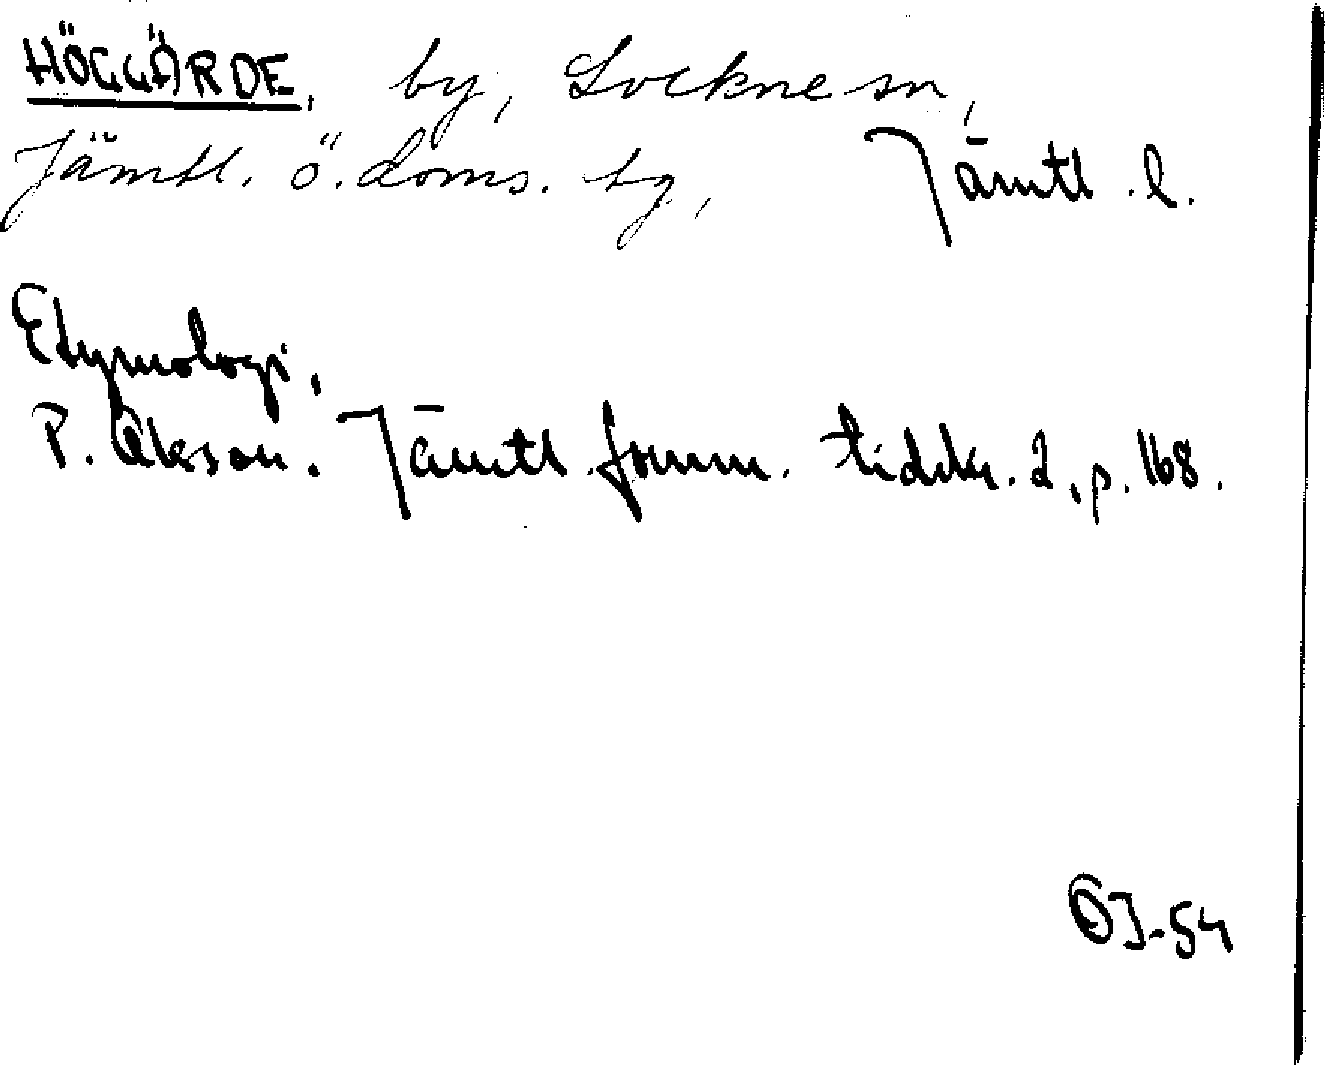 HÖGGÄRDE, by, Lockne sn,
Jämtl. ö. doms. tg, Jämtl. l.
Etymologi.
P. Åkeson. Jämtl. fornm. tidskr. 2, p. 168.
ÖJ-54